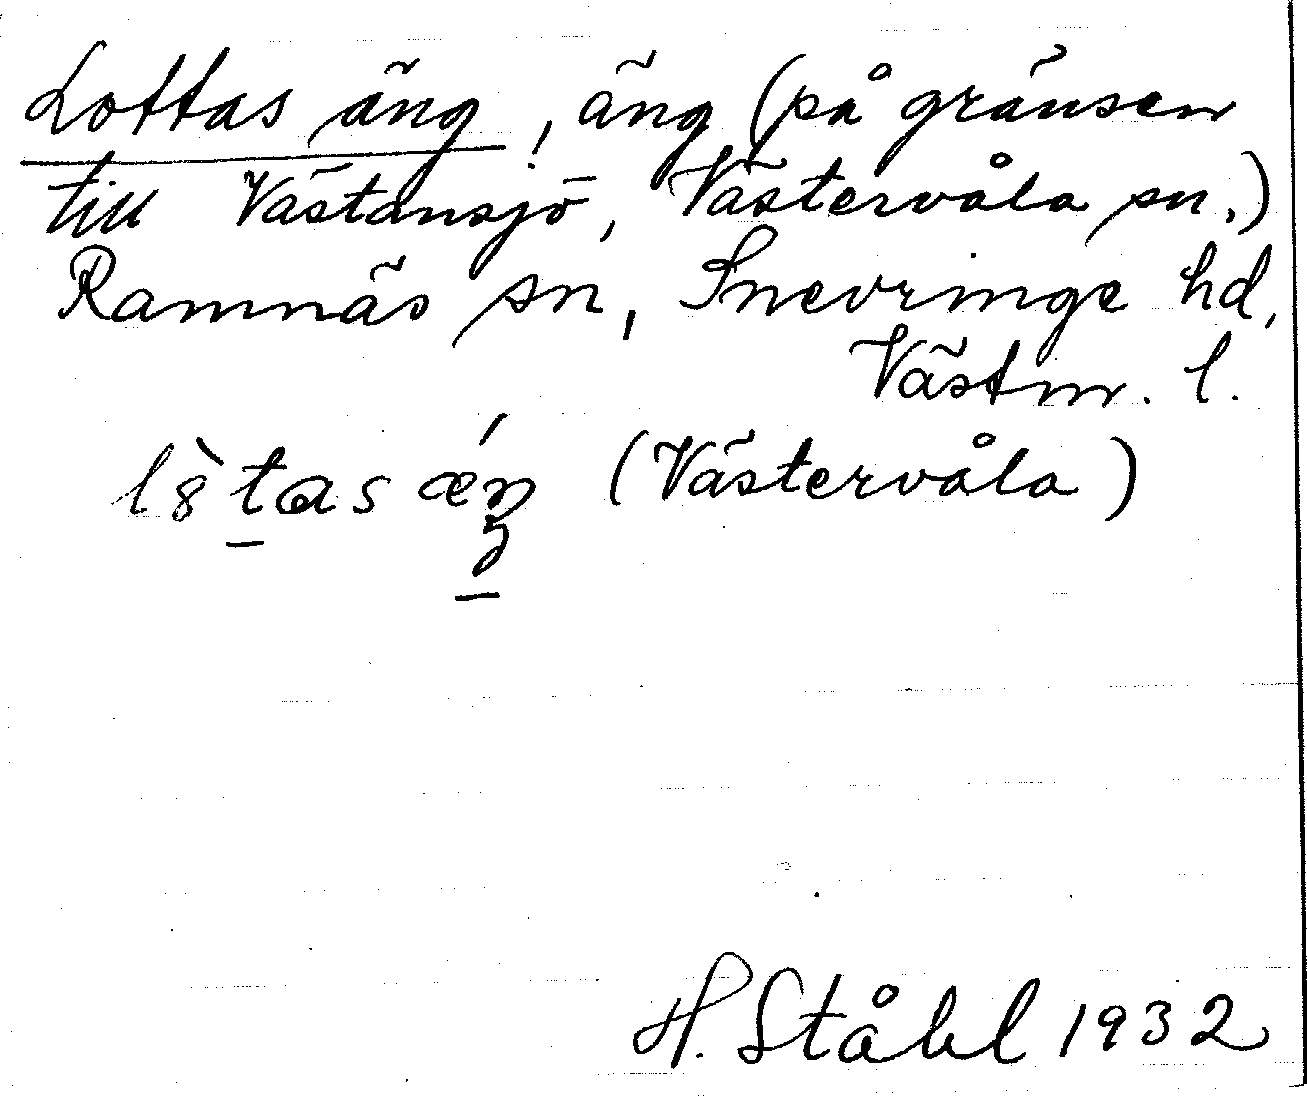 Lottas äng, äng (på gränsen
till Västansjö, Västervåla sn.)
Ramnäs sn, Snevringe hd,
Västm. l.
(Västervåla)
H. Ståhl 1932